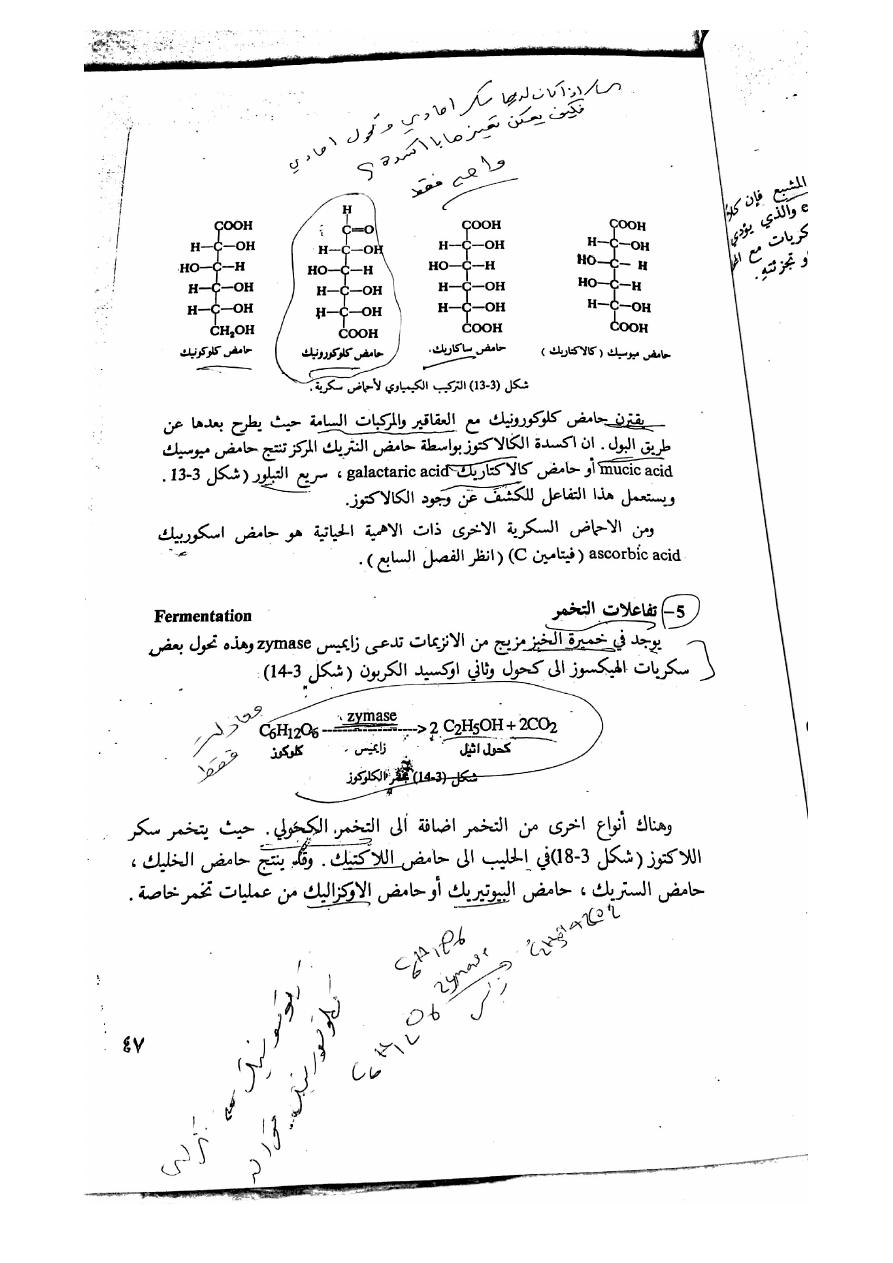 س/ اذا كان لديها سكر احادي و كحول احادي
فكيف يمكن تميزهما با اكسدة ؟
واجب فقط
المشبع فإن كلا
e والذي يؤدي
كريات مع الح
و تجزئته.
COOH
H—C—OH
HO—C—H
H—C—OH
H—C—OH
CH₂OH
حامض كلوكونيك
H
C=O
H—C—OH
HO—C—H
H—C—OH
H—C—OH
COOH
حامض كلوكورونيك
COOH
H—C—OH
HO—C—H
H—C—OH
H—C—OH
COOH
حامض ساكاريك.
COOH
H—C—OH
HO—C—H
HO—C—H
H—C—OH
COOH
حامض ميوسيك (كالاكتاريك)
شكل (3-13) التركيب الكيمياوي لأحماض سكرية.
يقترن حامض كلوكورونيك مع العقاقير والمركبات السامة حيث يطرح بعدها عن
طريق البول. ان اكسدة الكالاكتوز بواسطة حامض النتريك المركز تنتج حامض ميوسيك
mucic acid أو حامض كالاكتاريك galactaric acid ، سريع التبلور (شكل 3-13.
ويستعمل هذا التفاعل للكشف عن وجود الكالاكتوز.
ومن الاحماض السكرية الاخرى ذات الاهمية الحياتية هو حامض اسكوربيك
ascorbic acid (فيتامين C) (انظر الفصل السابع).
5- تفاعلات التخمر Fermentation
يوجد في خميرة الخبز مزيج من الانزيمات تدعى زايميس zymase وهذه تحول بعض
سكريات الهيكسوز الى كحول وثاني اوكسيد الكربون (شكل 3-14)
معادلة
فقط
C₆H₁₂O₆ ----zymase----> 2 C₂H₅OH + 2CO₂
كلوكوز زايميس كحول اثيل
شكل (3-14) تخمر الكلوكوز
وهناك أنواع اخرى من التخمر اضافة الى التخمر الكحولي. حيث يتخمر سكر
اللاكتوز (شكل 3-18) في الحليب الى حامض اللاكتيك. وقد ينتج حامض الخليك ،
حامض الستريك ، حامض البيوتيريك أو حامض الاوكزاليك من عمليات تخمر خاصة.
C₆H₁₂O₆
zymase
C₂H₅OH+2CO2
C₆H₁₂O₆
٤٧